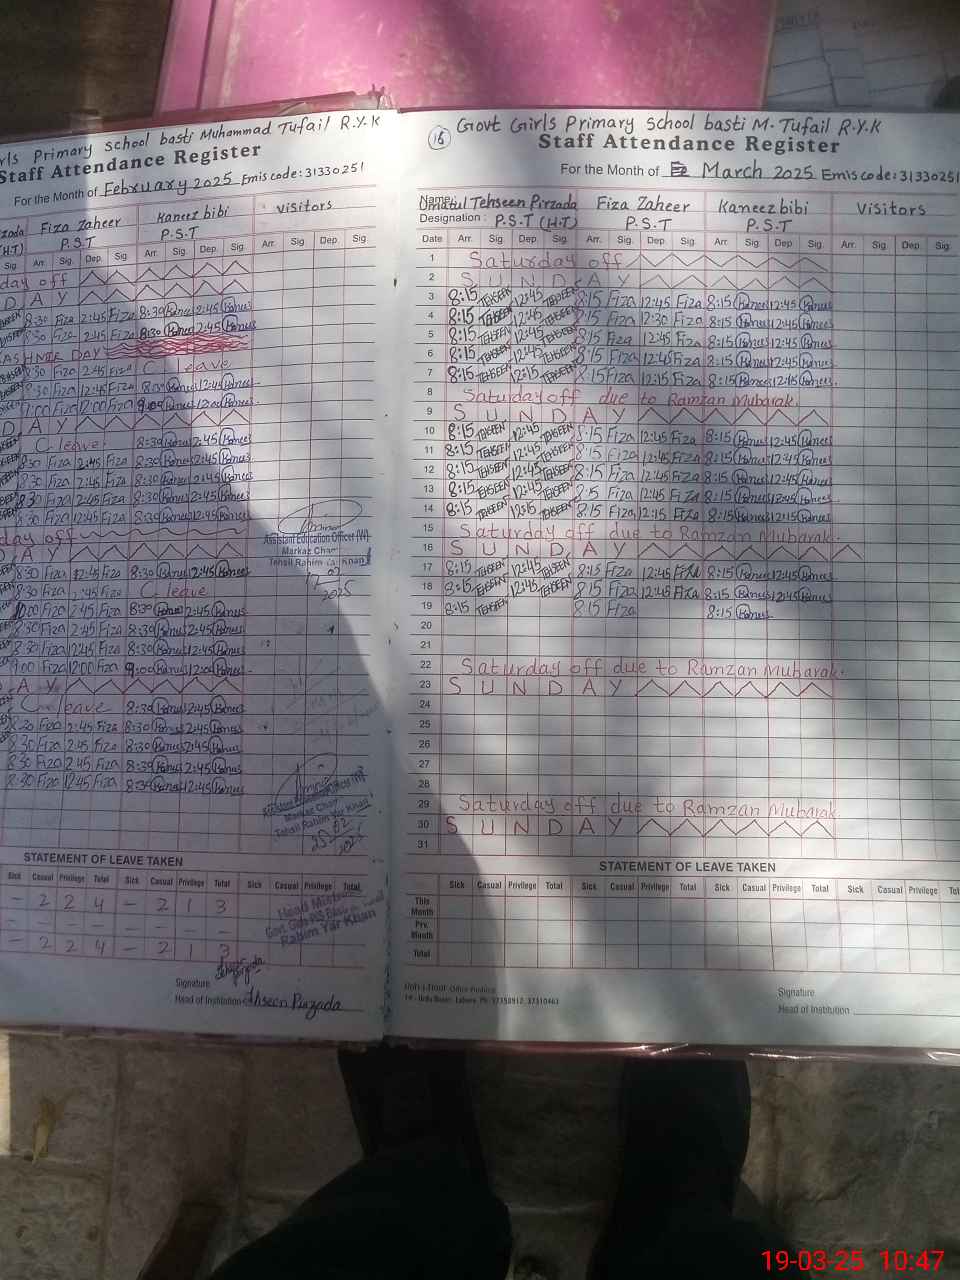 rls Primary School basti Muhammad Tufail R.Y.K
Staff Attendance Register
For the Month of February 2025 Emis code: 31330251
zada Fiza Zaheer Kaneez bibi visitors
(H.T) P.S.T P.S.T
Sig. Arr. Sig. Dep. Sig. Arr. Sig. Dep. Sig. Arr. Sig. Dep. Sig.
day off
D A Y
8:30 Fiza 12:45 Fiza 8:30 12:45
8:30 Fiza 12:45 Fiza 8:30 12:45
KASHMIR DAY
8:30 Fiza 12:45 Fiza C leave
8:30 Fiza 12:45 Fiza 8:30 12:45
9:00 Fiza 12:00 Fiza 9:00 12:00
D A Y
C leave 8:30 12:45
8:30 Fiza 12:45 Fiza 8:30 12:45
8:30 Fiza 12:45 Fiza 8:30 12:45
8:30 Fiza 12:45 Fiza 8:30 12:45
8:30 Fiza 12:45 Fiza 8:30 12:45
day off
D A Y
8:30 Fiza 12:45 Fiza 8:30 12:45
8:30 Fiza 12:45 Fiza C leave
10:00 Fiza 12:45 Fiza 8:30 12:45
8:30 Fiza 12:45 Fiza 8:30 12:45
8:30 Fiza 12:45 Fiza 8:30 12:45
9:00 Fiza 12:00 Fiza 9:00 12:00
A Y
C leave 8:30 12:45
8:30 Fiza 12:45 Fiza 8:30 12:45
8:30 Fiza 12:45 Fiza 8:30 12:45
8:30 Fiza 12:45 Fiza 8:30 12:45
8:30 Fiza 12:45 Fiza 8:30 12:45
Assistant Education Officer (W)
Markaz Chan
Tehsil Rahim Yar Khan
2025
Markaz Chan
Tehsil Rahim Yar Khan
25-02
2025
STATEMENT OF LEAVE TAKEN
Sick Casual Privilege Total Sick Casual Privilege Total Sick Casual Privilege Total
- 2 2 4 - 2 1 3
- - - - - - -
- 2 2 4 - 2 1 3
Rahim Yar Khan
Signature
Head of Institution Tehseen Pirzada
16 Govt Girls Primary School basti M. Tufail R.Y.K
Staff Attendance Register
For the Month of March 2025 Emis code: 31330251
Name: Ummatul Tehseen Pirzada Fiza Zaheer Kaneez bibi Visitors
Designation: P.S.T (H.T) P.S.T P.S.T
Date Arr. Sig. Dep. Sig. Arr. Sig. Dep. Sig. Arr. Sig. Dep. Sig. Arr. Sig. Dep. Sig.
1 Saturday off
2 S U N D A Y
3 8:15 TEHSEEN 12:45 TEHSEEN 8:15 Fiza 12:45 Fiza 8:15 12:45
4 8:15 TEHSEEN 12:45 TEHSEEN 8:15 Fiza 12:30 Fiza 8:15 12:45
5 8:15 TEHSEEN 12:45 TEHSEEN 8:15 Fiza 12:45 Fiza 8:15 12:45
6 8:15 TEHSEEN 12:45 TEHSEEN 8:15 Fiza 12:45 Fiza 8:15 12:45
7 8:15 TEHSEEN 12:15 TEHSEEN 8:15 Fiza 12:15 Fiza 8:15 12:15
8 Saturday off due to Ramzan Mubarak.
9 S U N D A Y
10 8:15 TEHSEEN 12:45 TEHSEEN 8:15 Fiza 12:45 Fiza 8:15 12:45
11 8:15 TEHSEEN 12:45 TEHSEEN 8:15 Fiza 12:45 Fiza 8:15 12:45
12 8:15 TEHSEEN 12:45 TEHSEEN 8:15 Fiza 12:45 Fiza 8:15 12:45
13 8:15 TEHSEEN 12:45 TEHSEEN 8:15 Fiza 12:45 Fiza 8:15 12:45
14 8:15 TEHSEEN 12:15 TEHSEEN 8:15 Fiza 12:15 Fiza 8:15 12:15
15 Saturday off due to Ramzan Mubarak.
16 S U N D A Y
17 8:15 TEHSEEN 12:45 TEHSEEN 8:15 Fiza 12:45 Fiza 8:15 12:45
18 8:15 TEHSEEN 12:45 TEHSEEN 8:15 Fiza 12:45 Fiza 8:15 12:45
19 8:15 TEHSEEN 8:15 Fiza 8:15
20
21
22 Saturday off due to Ramzan Mubarak.
23 S U N D A Y
24
25
26
27
28
29 Saturday off due to Ramzan Mubarak.
30 S U N D A Y
31
STATEMENT OF LEAVE TAKEN
Sick Casual Privilege Total Sick Casual Privilege Total Sick Casual Privilege Total Sick Casual Privilege Tot
This Month
Prv. Month
Total
Urdu Bazar, Lahore. Ph: 37358912, 37310463
Signature
Head of Institution
19-03-25 10:47